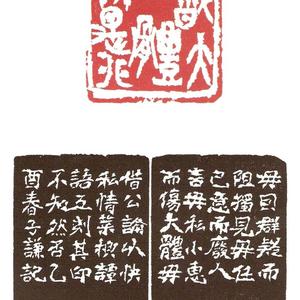 大
體
是非
毋因群疑而
阻獨見毋任
己意而廢人
言毋私小惠
而傷大體毋
借公論以快
私情菜根譚
語五刻其印
不知然否乙
酉春子謙記